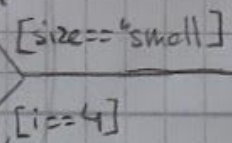 [size=="small]
[i==4]